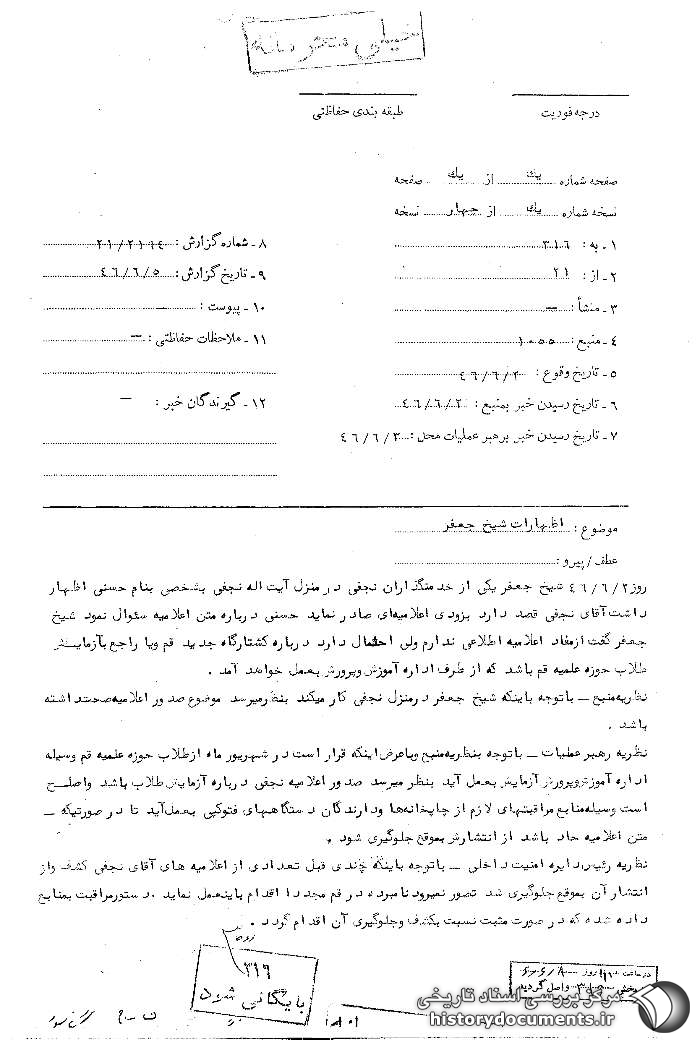 خیلی محرمانه
درجه فوریت
طبقه بندی حفاظتی
صفحه شماره یك از یك صفحه
نسخه شماره یك از چهار نسخه
۱ـ به : ۳۱٦
۲ـ از : ۲۱
۳ـ منشأ : —
٤ـ منبع : ۱۰۵۵
۵ـ تاریخ وقوع : ٤٦/٦/۲
٦ـ تاریخ رسیدن خبر بمنبع : ٤٦/٦/۲
۷ـ تاریخ رسیدن خبر برهبر عملیات محل : ٤٦/٦/۳
۸ـ شماره گزارش :
۹ـ تاریخ گزارش : ٤٦/٦/۵
۱۰ـ پیوست : —
۱۱ـ ملاحظات حفاظتی : —
۱۲ـ گیرندگان خبر : —
موضوع : اظهارات شیخ جعفر
عطف/پیرو :
روز ٤٦/٦/۲ شیخ جعفر یکی از خدمتگذاران نجفی در منزل آیت اله نجفی بشخصی بنام حسنی اظهار
داشت آقای نجفی قصد دارد بزودی اعلامیه‌ای صادر نماید حسنی درباره متن اعلامیه سئوال نمود شیخ
جعفر گفت ازمفاد اعلامیه اطلاعی ندارم ولی احتمال دارد درباره کشتارگاه جدید قم ویا راجع بآزمایش
طلاب حوزه علمیه قم باشد که از طرف اداره آموزش وپرورش بعمل خواهد آمد .
نظریه‌منبع ـ باتوجه باینکه شیخ جعفر درمنزل نجفی کار میکند بنظرمیرسد موضوع صدور اعلامیه‌صحت‌داشته
باشد .
نظریه رهبر عملیات ـ باتوجه بنظریه‌منبع وباعرض‌اینکه قرار است در شهریور ماه ازطلاب حوزه علمیه قم وسیله
اداره آموزش‌وپرورش آزمایش بعمل آید بنظر میرسد صدور اعلامیه نجفی درباره آزمایش طلاب باشد واصلح
است وسیله‌منابع مراقبتهای لازم از چاپخانه‌ها ودارندگان دستگاههای فتوکپی بعمل‌آید تا در صورتیکه ـ
متن اعلامیه حاد باشد از انتشارش بموقع جلوگیری شود .
نظریه رئیس‌دایره امنیت داخلی ـ باتوجه باینکه چندی قبل تعدادی از اعلامیه های آقای نجفی کشف واز
انتشار آن بموقع جلوگیری شد تصور نمیرود نامبرده در قم مجددا اقدام باینعمل نماید .دستورمراقبت بمنابع
داده شده که در صورت مثبت نسبت بکشف وجلوگیری آن اقدام گردد .
۳۱٦
بایگانی شود
واصل گردید
مرکز بررسی اسناد تاریخی
historydocuments.ir